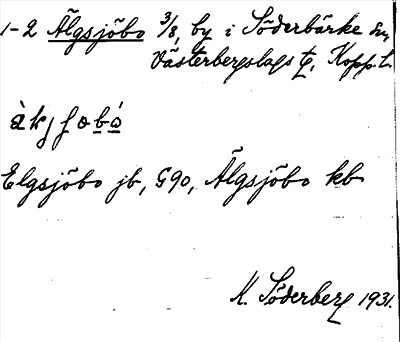 1-2 Älgsjöbo 3/8, by i Söderbärke sn,
Västerbergslags tg, Kopp. L.
Elgsjöbo jb, §90, Älgsjöbo kb
K. Söderberg 1931.